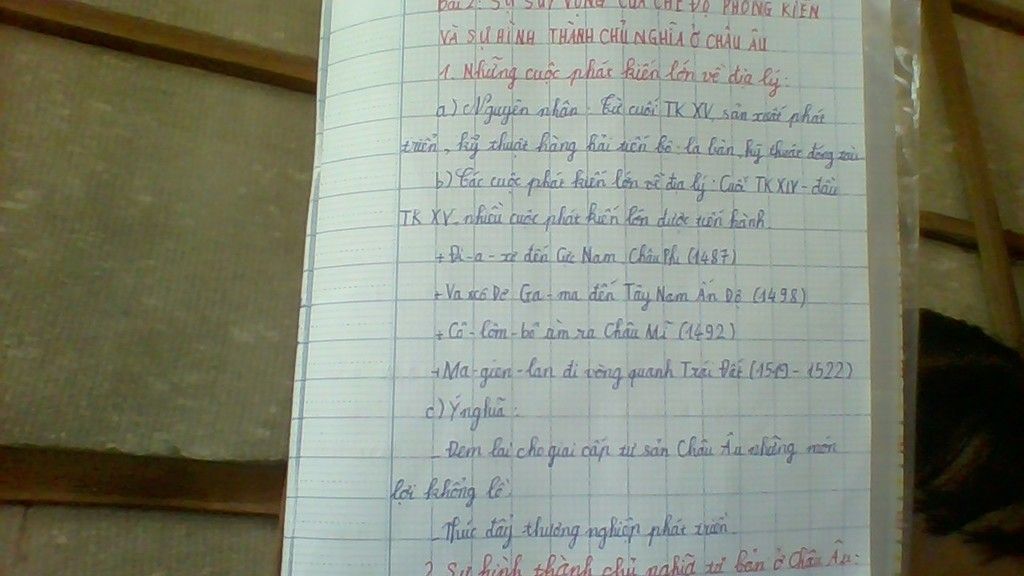 Bài 2: SỰ SUY VONG CỦA CHẾ ĐỘ PHONG KIẾN
VÀ SỰ HÌNH THÀNH CHỦ NGHĨA Ở CHÂU ÂU
1. Những cuộc phát kiến lớn về địa lý:
a) Nguyên nhân: Từ cuối TK XV, sản xuất phát
triển, kỹ thuật hàng hải tiến bộ: la bàn, kỹ thuật đóng tàu
b) Các cuộc phát kiến lớn về địa lý: Cuối TK XIV - đầu
TK XV nhiều cuộc phát kiến lớn được tiến hành.
+ Đi-a-xơ đến Cực Nam Châu Phi (1487)
+ Va xcô Đơ Ga-ma đến Tây Nam Ấn Độ (1498)
+ Cô-lôm-bô tìm ra Châu Mĩ (1492)
+ Ma-gien-lan đi vòng quanh Trái Đất (1519-1522)
c) Ý nghĩa:
- Đem lại cho giai cấp tư sản Châu Âu những món
lợi khổng lồ.
- Thúc đẩy thương nghiệp phát triển.
2. Sự hình thành chủ nghĩa tư bản ở Châu Âu: